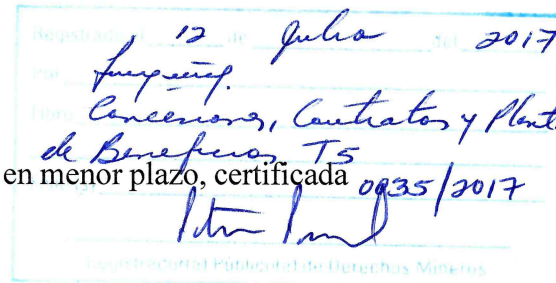 Registrado el 12 de Julio del 2017
Por
Libro Concesiones, Contratos y Plantas
de Beneficios T5
en menor plazo, certificada 0035/2017
Registrador(a) Público(a) de Derechos Mineros